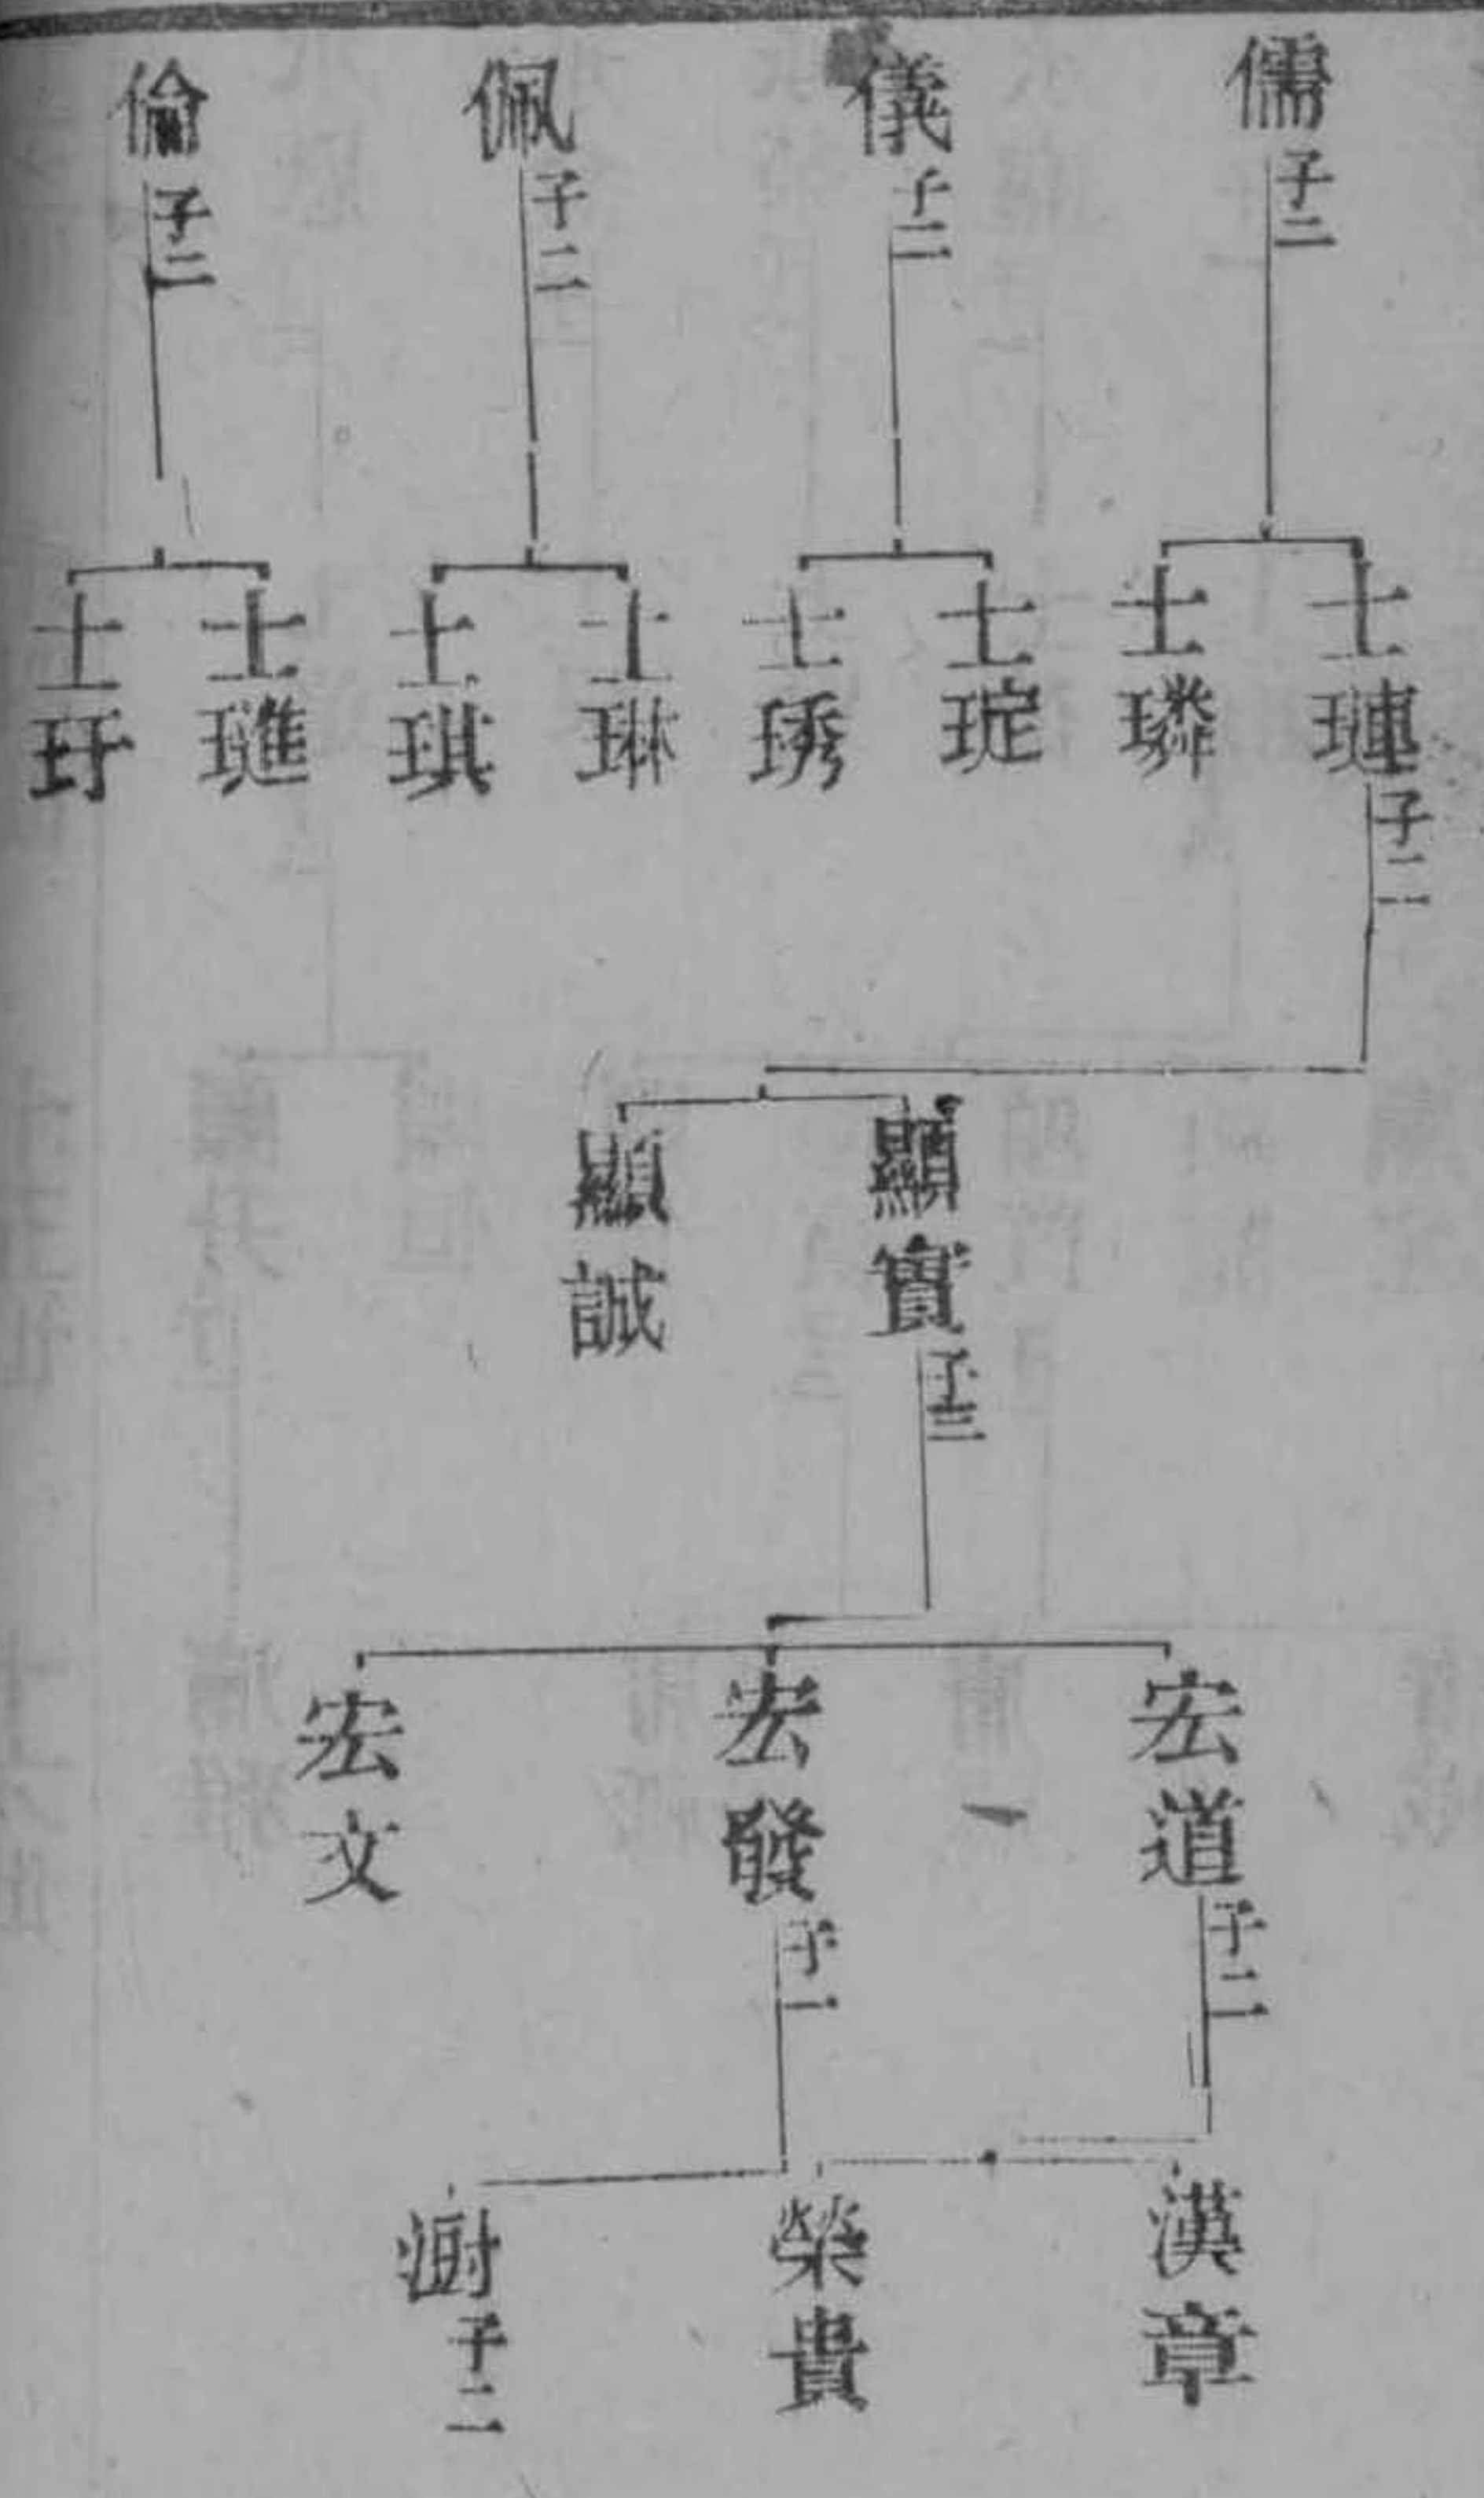 儒 子二
儀 子二
佩 子二
倫 子二
士璉 子二
士璘
士琔
士琇
士琳
士琪
士璡
士玗
顯實 子三
顯誠
宏道 子二
宏發 子一
宏文
漢章
榮貴
澍 子二